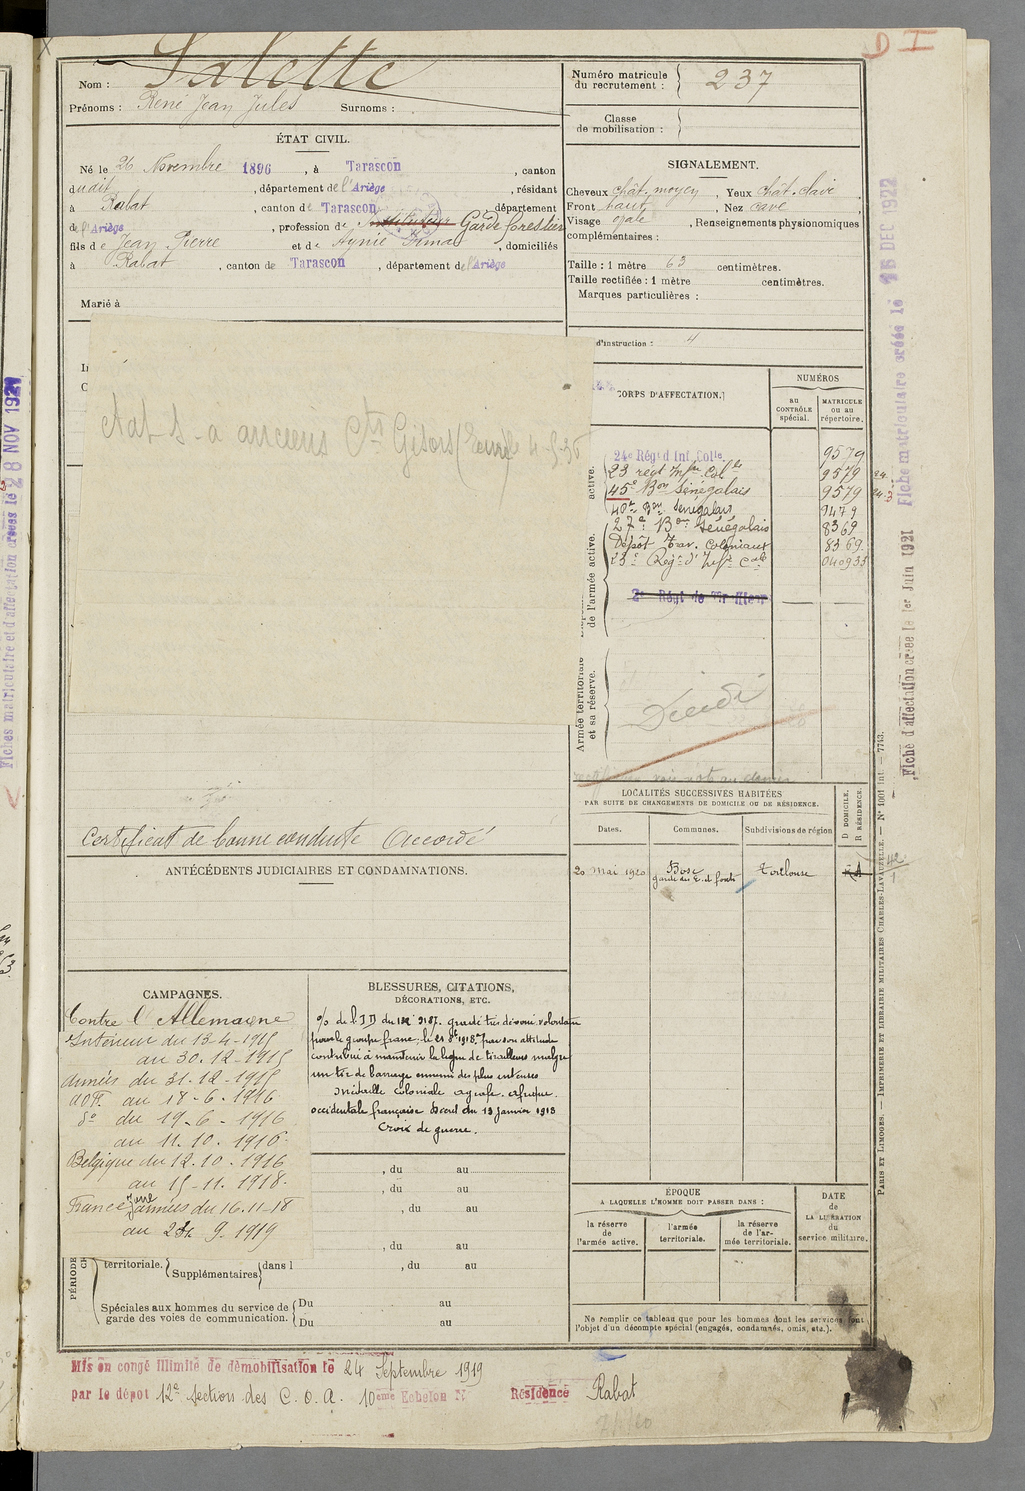 D I
Nom : Salette
Prénoms : René Jean Jules Surnoms :
Numéro matricule du recrutement : 237
Classe de mobilisation :
ÉTAT CIVIL.
Né le 26 Novembre 1896, à Tarascon, canton
dudit, département de l'Ariège, résidant
à Rabat, canton de Tarascon, département
de l'Ariège, profession de instituteur Garde forestier
fils de Jean Pierre et de Aynié Irma, domiciliés
à Rabat, canton de Tarascon, département de l'Ariège
Marié à
SIGNALEMENT.
Cheveux chât. moyen, Yeux chât. clair
Front haut, Nez cave,
Visage ovale, Renseignements physionomiques
complémentaires :
Taille : 1 mètre 63 centimètres.
Taille rectifiée : 1 mètre centimètres.
Marques particulières :
d'instruction : 4
Adt S - a anciens Cts Gisors (Eure) le 4-5-36
CORPS D'AFFECTATION.
NUMÉROS
AU CONTRÔLE spécial.
MATRICULE ou au répertoire.
active.
24e Régt d'Inf. Colle 9579
23 régt Infie Colle 9579
45e Bon Sénégalais 9579
40e Bon Sénégalais 9479
27e Bon Sénégalais 8369
Dépôt Trav. Coloniaux 8369
23e Régt d'Infie Cale 040935
de l'armée active.
2e Régt de Tirailleur
Armée territoriale et sa réserve.
LOCALITÉS SUCCESSIVES HABITÉES
PAR SUITE DE CHANGEMENTS DE DOMICILE OU DE RÉSIDENCE.
Dates. Communes. Subdivisions de région
D DOMICILE. R RÉSIDENCE.
20 Mai 1920 Bosc Toulouse
garde des E. et forêts
Certificat de bonne conduite Accordé
ANTÉCÉDENTS JUDICIAIRES ET CONDAMNATIONS.
CAMPAGNES.
Contre l'Allemagne
Intérieur du 13-4-1915
au 30.12-1915
Armées du 31.12-1915
AOF. au 18-6-1916
do du 19-6-1916
au 11.10.1916
Belgique du 12.10.1916
au 15-11.1918.
France Zone armées du 16.11-18
au 24 9.1919
BLESSURES, CITATIONS,
DÉCORATIONS, ETC.
O/o de l'ID du 12 Nr 3187. gradé très dévoué, volontaire
pour le groupe franc; le 21 8bre 1918, par son attitude
contribué à maintenir la ligne de tirailleurs malgré
un tir de barrage ennemi des plus intenses
Médaille Coloniale agrafe Afrique
occidentale française Décret du 13 Janvier 1913
Croix de guerre.
, du au
, du au
, du au
, du au
territoriale. Supplémentaires dans l , du au
PÉRIODE
Spéciales aux hommes du service de garde des voies de communication. Du au
Du au
ÉPOQUE
A LAQUELLE L'HOMME DOIT PASSER DANS :
la réserve de l'armée active.
l'armée territoriale.
la réserve de l'armée territoriale.
DATE de LA LIBÉRATION du service militaire.
Ne remplir ce tableau que pour les hommes dont les services font
l'objet d'un décompte spécial (engagés, condamnés, omis, etc.).
Mis en congé illimité de démobilisation le 24 Septembre 1919
par le dépôt 12e Section des C. O. A. 10ème Echelon N Résidence Rabat
Fiches matriculaire et d'affectation créées le 28 NOV 1921
Fiche matriculaire créée le 15 DEC 1922
Fiche d'affectation créée le 1er Juin 1921
PARIS ET LIMOGES. — IMPRIMERIE ET LIBRAIRIE MILITAIRES CHARLES-LAVAUZELLE. — N° 1001 Int. — 7743.